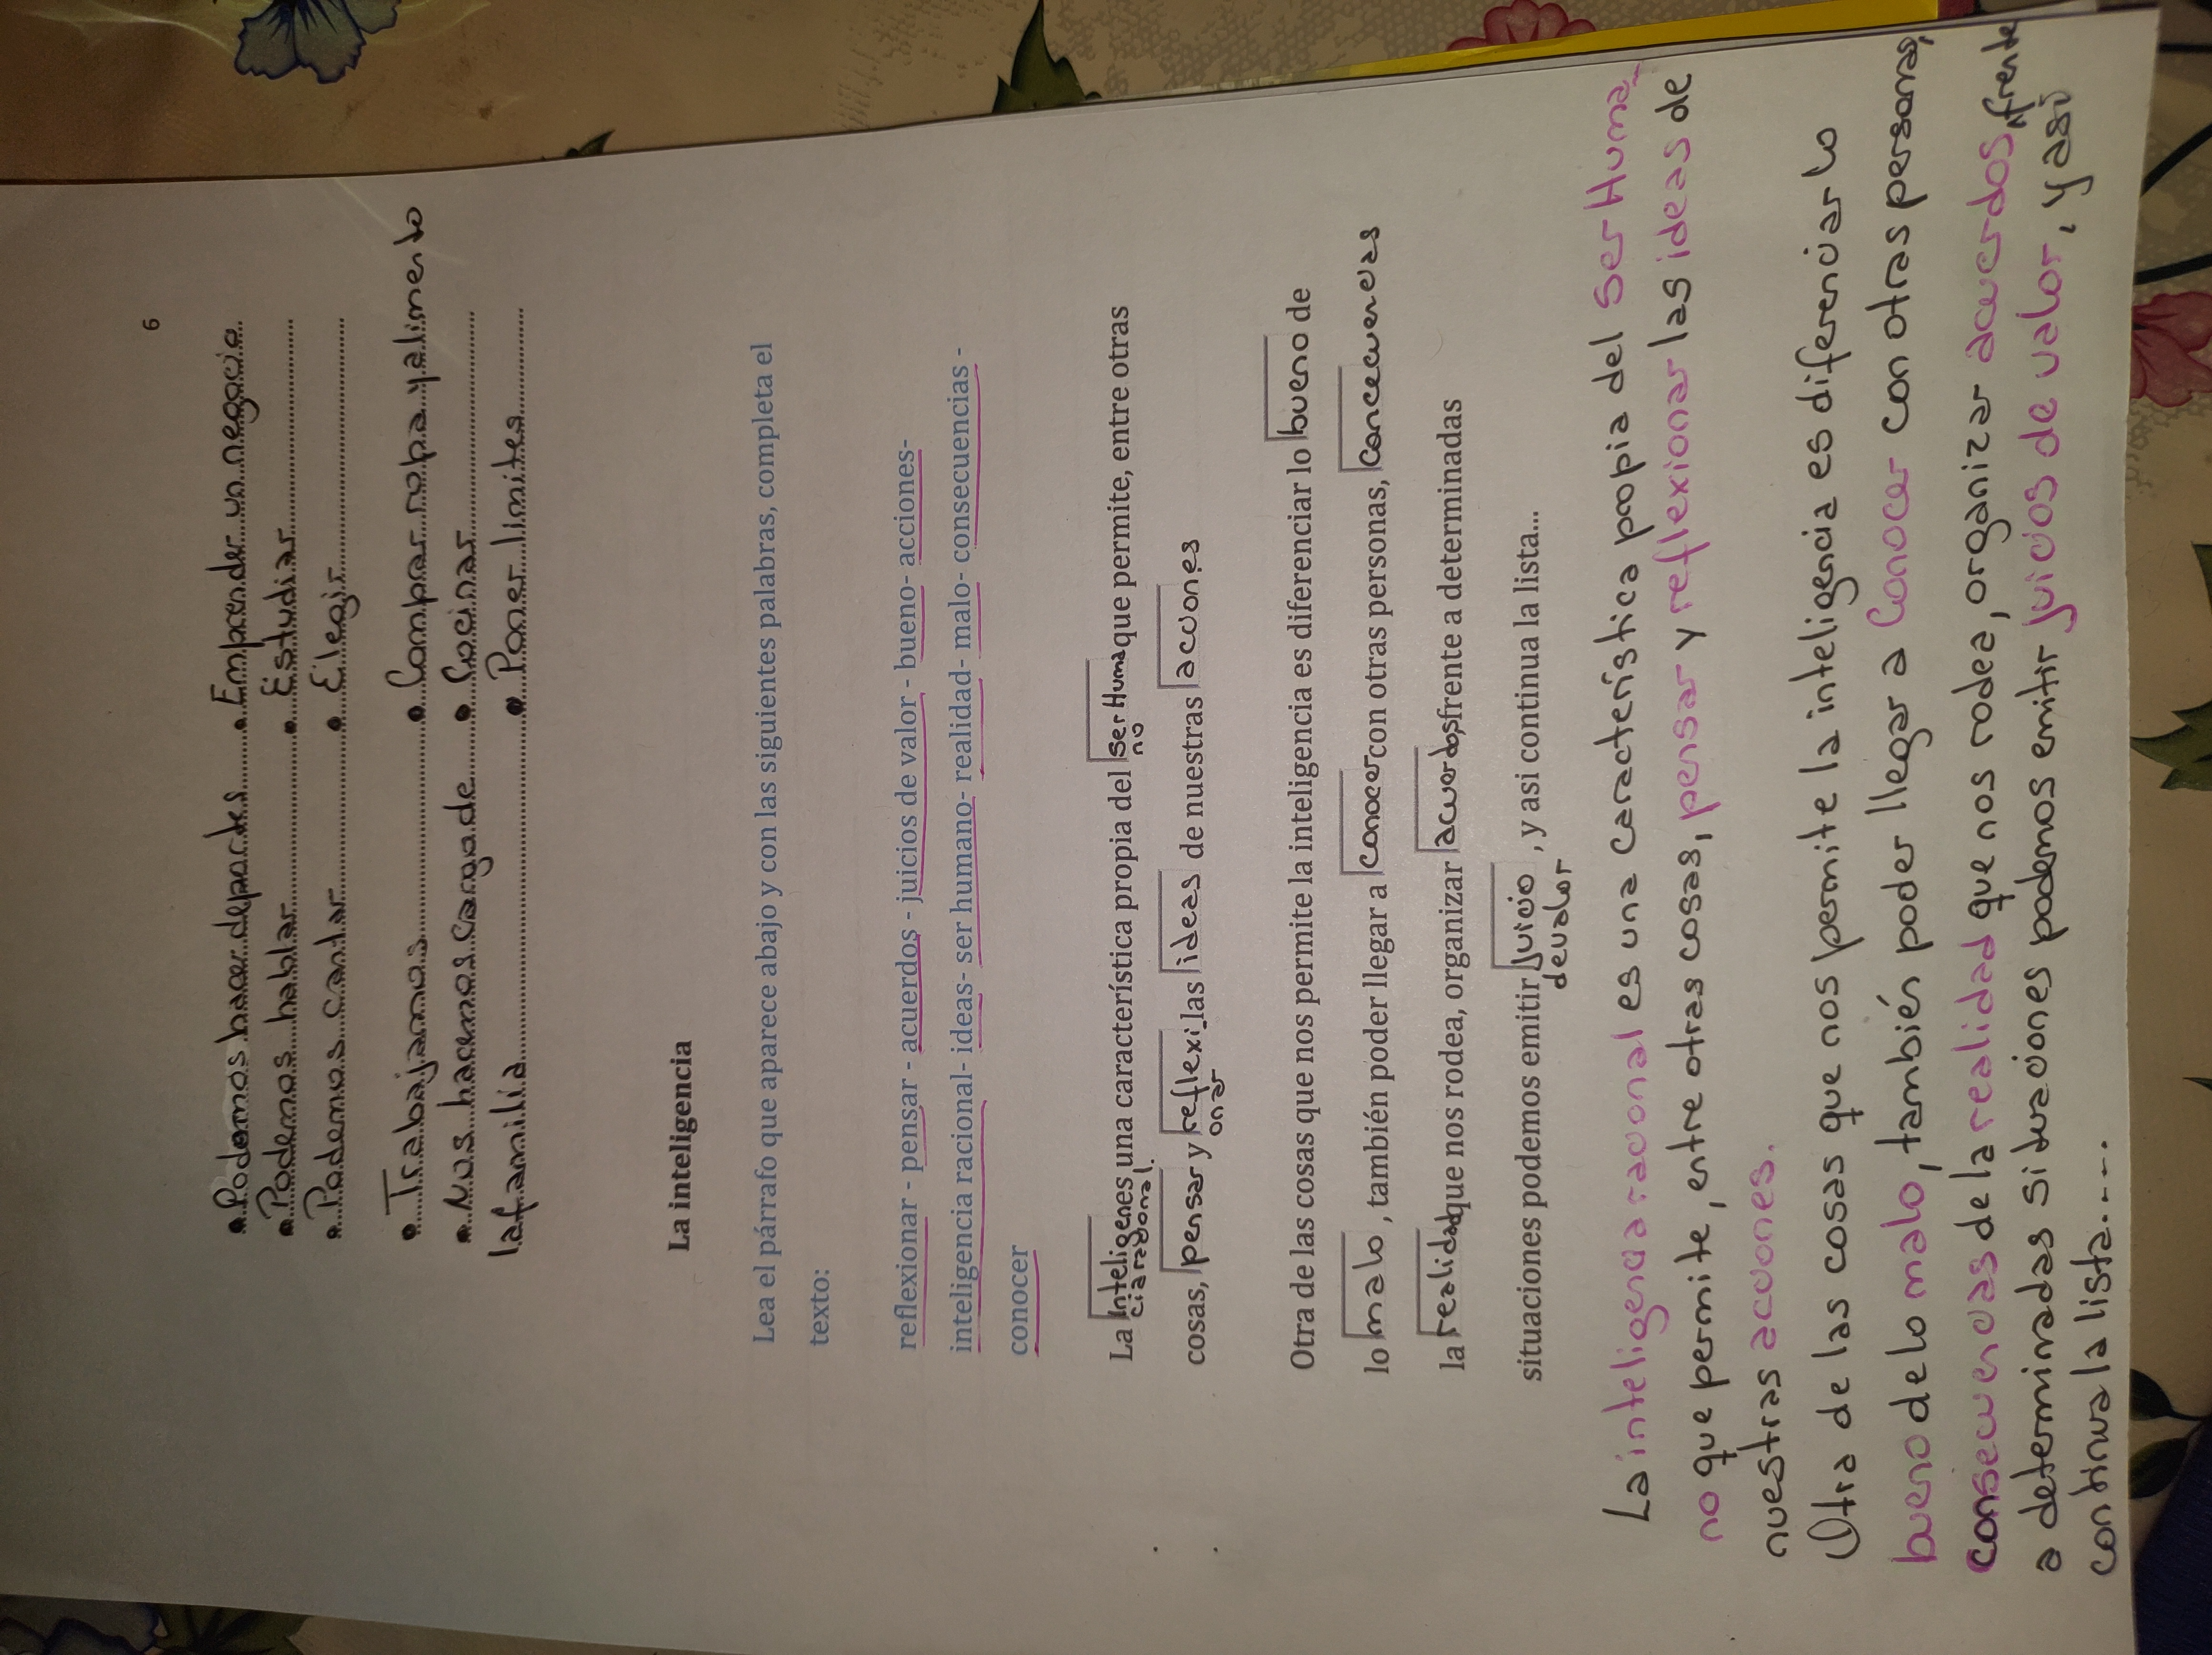 6
• Podemos hacer deportes ........ • Emprender un negocio
• Podemos hablar ........ • Estudiar
• Podemos cantar ........ • Elegir
• Trabajamos ........ • Comprar ropa y alimento
• Nos hacemos cargo de ........ • Cocinar
la familia ........ • Poner limites
La inteligencia
Lea el párrafo que aparece abajo y con las siguientes palabras, completa el
texto:
reflexionar - pensar - acuerdos - juicios de valor - bueno- acciones-
inteligencia racional- ideas- ser humano- realidad- malo- consecuencias -
conocer
La Inteligencia racional. es una característica propia del ser Humano que permite, entre otras
cosas, pensar y reflexionar las ideas de nuestras acciones
Otra de las cosas que nos permite la inteligencia es diferenciar lo bueno de
lo malo, también poder llegar a conocer con otras personas, concecuencias
la realidad que nos rodea, organizar acuerdos, frente a determinadas
situaciones podemos emitir juicio de valor, y asi continua la lista...
La inteligencia racional es una característica propia del Ser Huma-
no que permite, entre otras cosas, pensar y reflexionar las ideas de
nuestras acciones.
Otra de las cosas que nos permite la inteligencia es diferenciar lo
bueno de lo malo, también poder llegar a Conocer con otras personas,
consecuencias de la realidad que nos rodea, organizar acuerdos, frente
a determinadas situaciones podemos emitir juicios de valor, y así
continua la lista.....